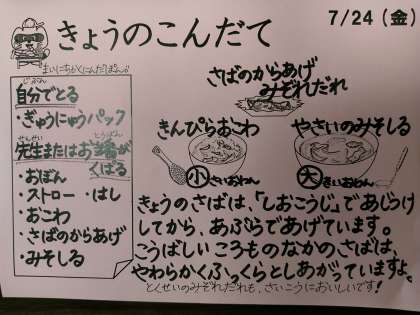 きょうのこんだて
7/24（金）
まいにちかくにんだぽん♪
じぶん
自分でとる
・ぎゅうにゅうパック
せんせい とうばん
先生またはお当番が
くばる
・おぼん
・ストロー ・はし
・おこわ
・さばのからあげ
・みそしる
さばのからあげ
みぞれだれ
きんぴらおこわ
小さいおわん
やさいのみそしる
大きいおわん
きょうのさばは、「しおこうじ」であじつけ
してから、あぶらであげています。
こうばしいころものなかのさばは、
やわらかくふっくらとしあがっていますよ。
とくせいのみぞれだれも、さいこうにおいしいです！